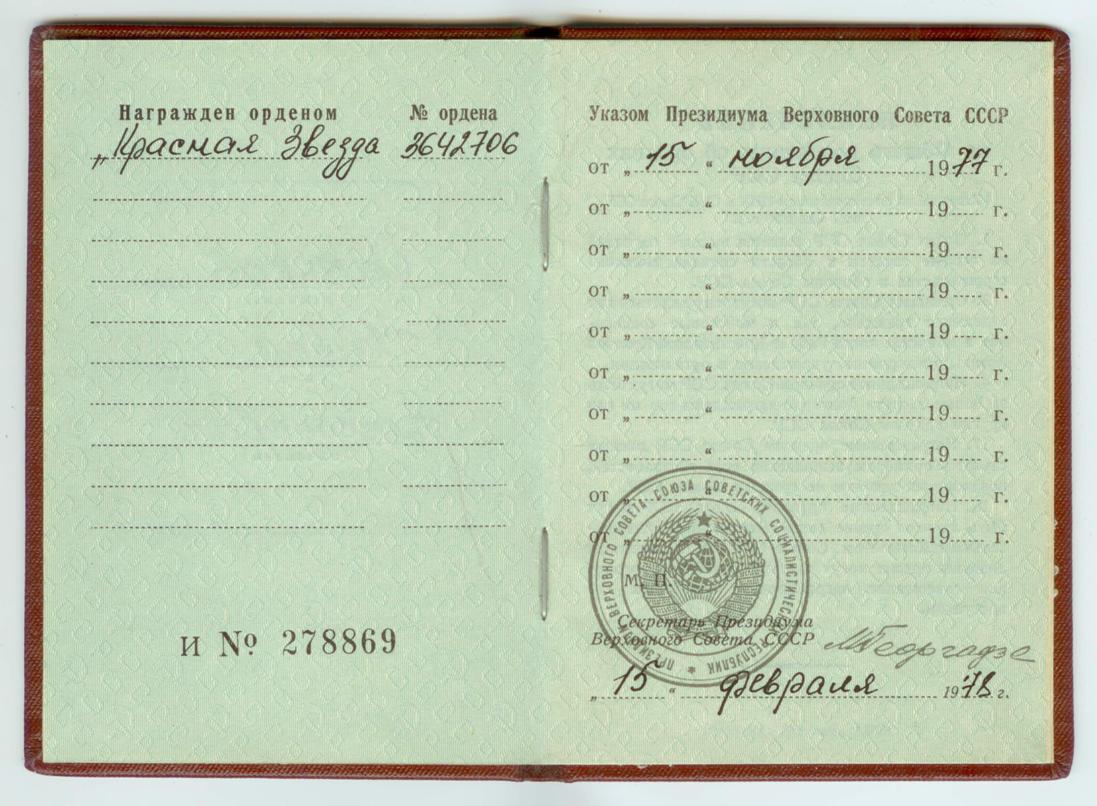 Награжден орденом № ордена
„Красная Звезда 3642706
И № 278869
Указом Президиума Верховного Совета СССР
от „ 15 “ ноября 1977 г.
от „ “ 19 г.
от „ “ 19 г.
от „ “ 19 г.
от „ “ 19 г.
от „ “ 19 г.
от „ “ 19 г.
от „ “ 19 г.
от „ “ 19 г.
от „ “ 19 г.
ПРЕЗИДИУМ ВЕРХОВНОГО СОВЕТА СОЮЗА СОВЕТСКИХ СОЦИАЛИСТИЧЕСКИХ РЕСПУБЛИК
М. П.
Секретарь Президиума
Верховного Совета СССР МГеоргадзе
„ 15 “ февраля 1978 г.